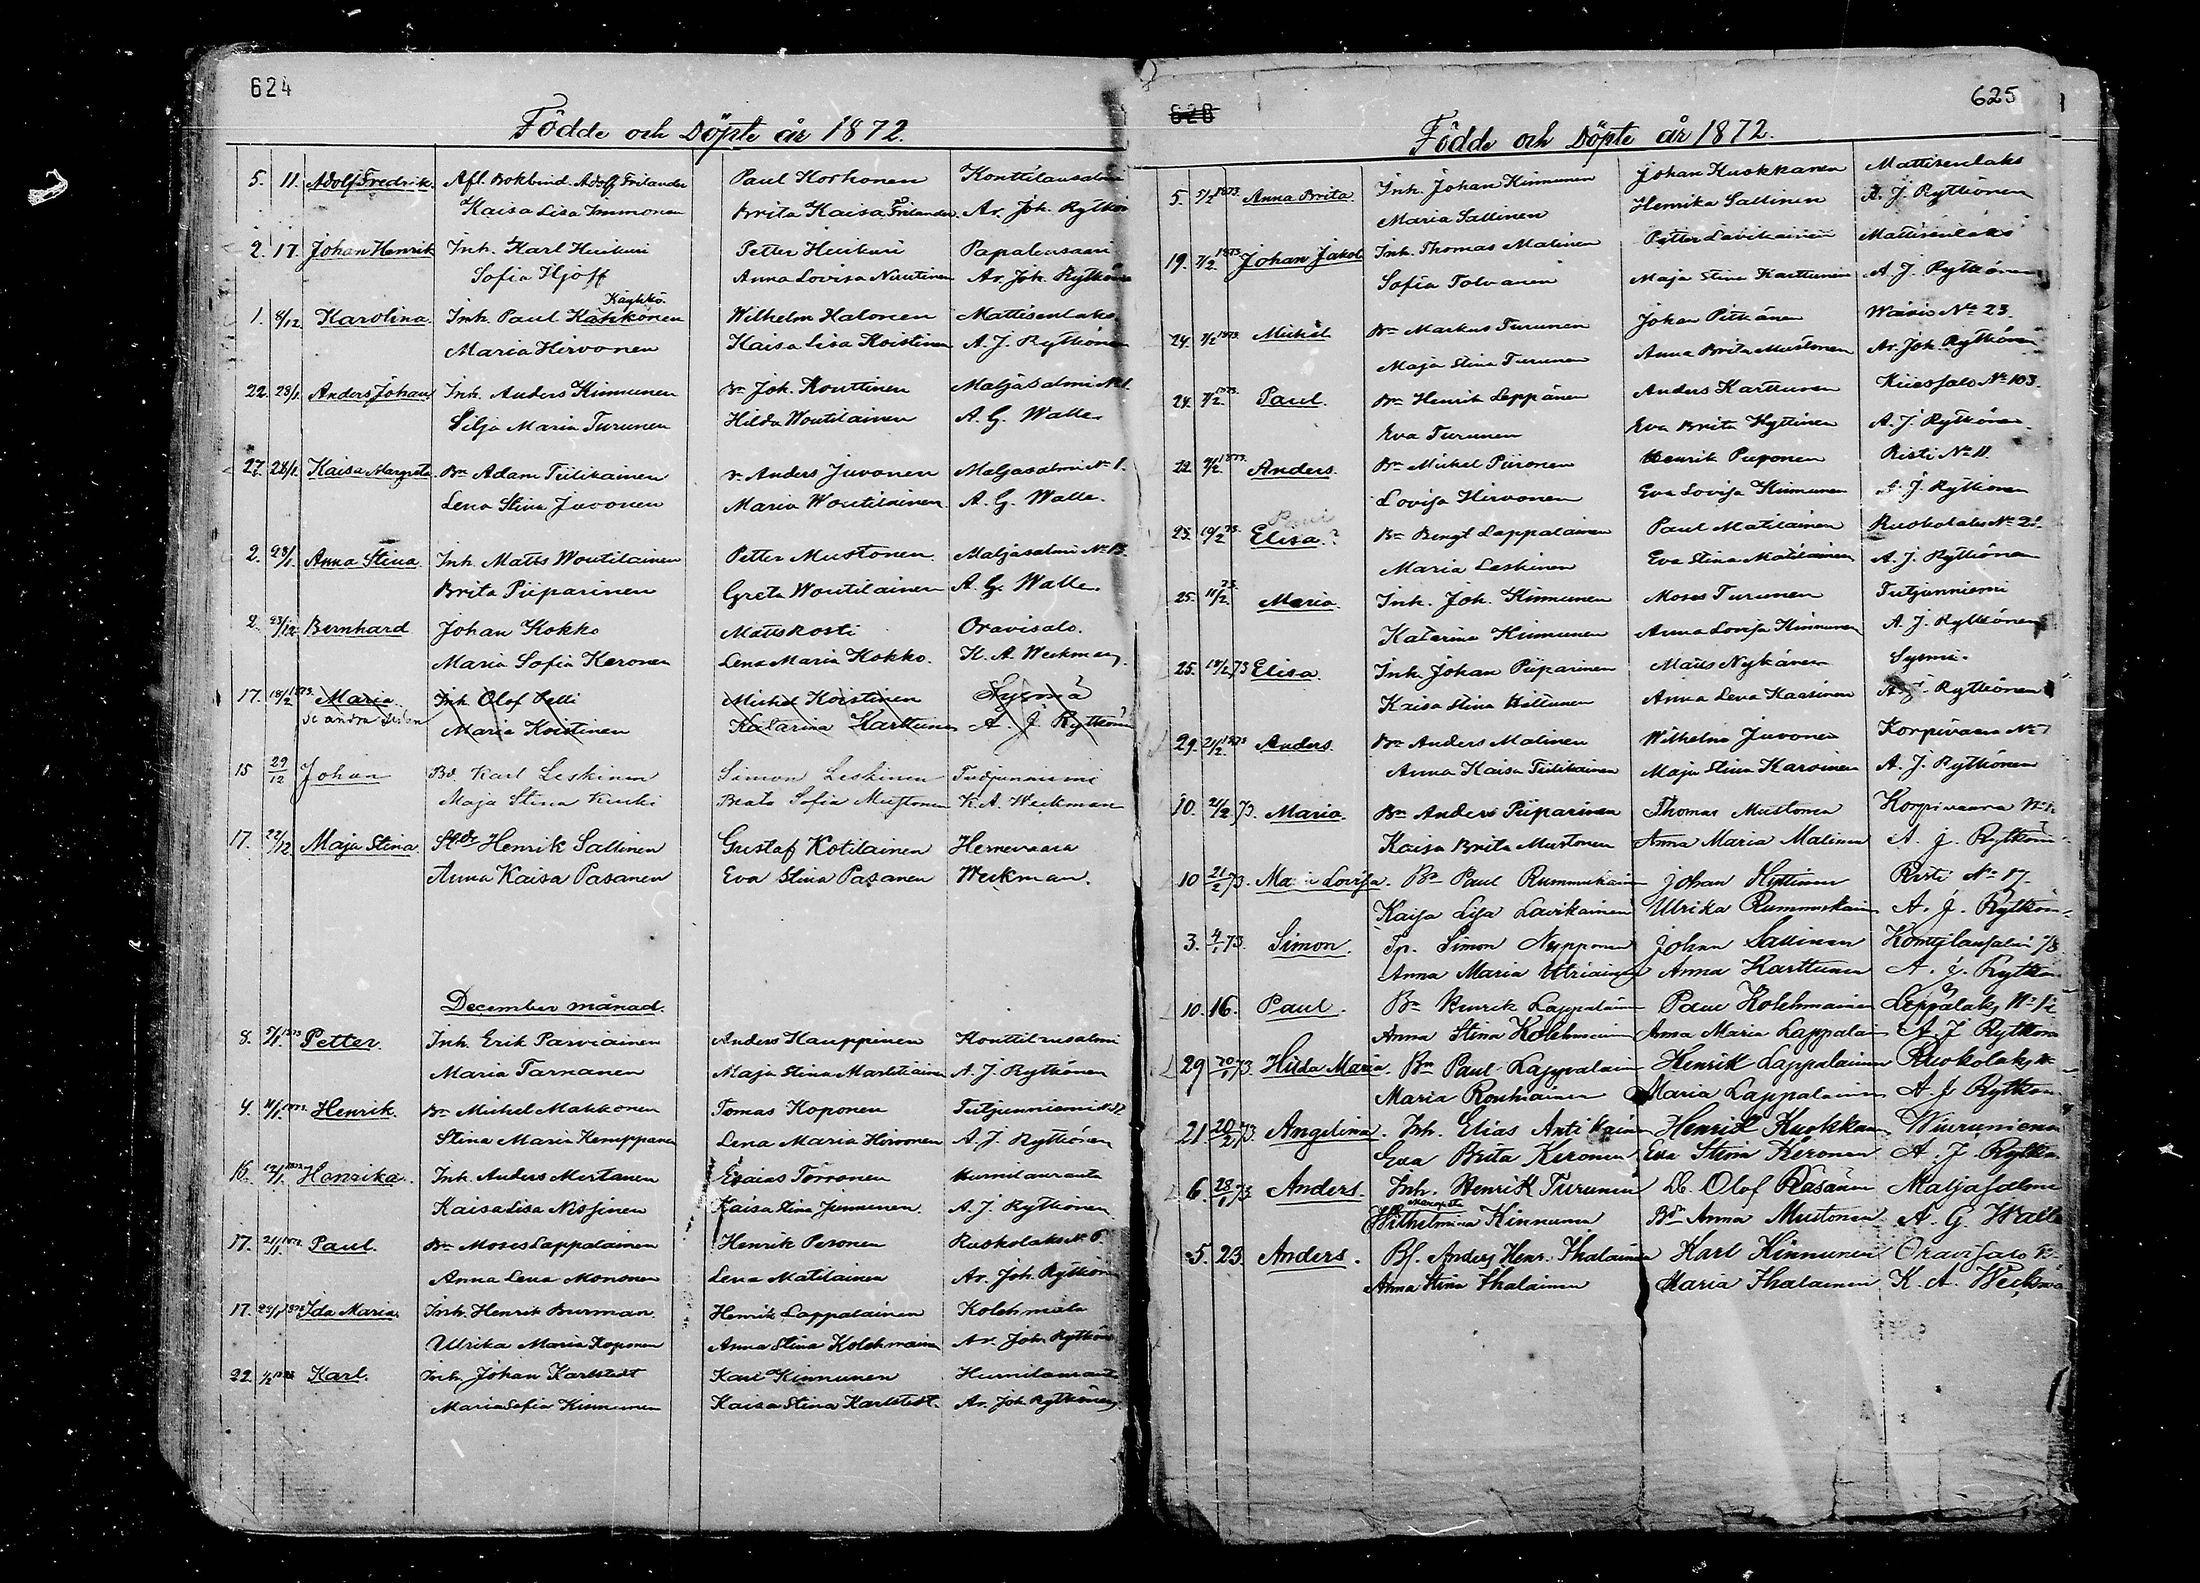 624
Födde och Döpte år 1872.
5. 11. Adolf Fredrik. Afl. Bokbind. Adolf Frilander Paul Korhonen Konttilansalmi
Kaisa Lisa Immonen Brita Kaisa Frilander Ar. Joh. Rytkö
2. 17. Johan Henrik Inh. Karl Huikuri Petter Huikuri Papalansaari
Sofia Hjoff Anna Lovisa Nuutinen Ar. Joh. Rytköne
Käykkö.
1. 8/12 Karolina. Inh. Paul Kähkönen Wilhelm Halonen Mattisenlaks
Maria Hirvonen Kaisa Lisa Koistinen A. J. Rytkönen
22. 28/1. Anders Johan Inh. Anders Kinnunen Br Joh. Konttinen Maljasalmi
Silja Maria Turunen Hilda Woutilainen A. G. Walle
27. 28/1. Kaisa Margreta Bn Adam Tiilikainen Anders Juvonen Maljasalmi No 1.
Lena Stina Juvonen Maria Woutilainen A. G. Walle.
2. 23/1. Anna Stina. Inh. Matts Woutilainen Petter Mustonen Maljasalmi No 13.
Brita Piiparinen Greta Woutilainen A. G. Walle.
2. 23/12 Bernhard Johan Kokko Matts Kosti Oravisalo.
Maria Sofia Keronen Lena Maria Kokko. K. A. Weckman.
17. 18/2 1873. Maria. Inh Olof Petti Michel Koistinen Sysmä
se andra sidan Maria Koistinen Katarina Karttunen A. J. Rytkönen
15 29/12 Johan Bd. Karl Leskinen Simon Leskinen Tudjunniemi
Maja Stina Kuski Beata Sofia Mustonen K. A. Weckman
17. 22/12 Maja Stina. Henrik Sallinen Gustaf Kotilainen Hernevaara
Anna Kaisa Pasanen Eva Stina Pasanen Weckman.
December månad.
8. 5/1 1873 Petter. Inh. Erik Parviainen Anders Kauppinen Konttilansalmi
Maria Tarnanen Maja Stina Martikainen A. J. Rytkönen
4. Henrik. Br Michel Makkonen Tomas Koponen Tutjunniemi
Stina Maria Kemppanen Lena Maria Hirvonen A. J. Rytkönen
16. Henrika. Inh. Anders Mertanen Esaias Törrönen Humilanranta
Kaisa Lisa Nissinen Kaisa Stina Jinnunen. A. J. Rytkönen
17. Paul. Bn Moses Lappalainen Henrik Pesonen Ruokolaks No 6
Anna Lena Mononen Lena Matilainen Ar. Joh. Rytkönen
17. Ida Maria. Inh. Henrik Burman. Henrik Lappalainen Kolehmala
Ulrika Maria Koponen Anna Stina Kolehmainen Ar. Joh. Rytkönen
22. Karl. Inh. Johan Karlstedt Karl Kinnunen Humilanranta
Maria Sofia Kinnunen Kaisa Stina Karlstedt. Ar. Joh. Rytkönen
628
625
Födde och Döpte år 1872.
5. 5/2 1873. Anna Brita. Inh. Johan Kinnunen Johan Kuokkanen Mattisenlaks
Maria Sallinen Henrika Sallinen A. J. Rytkönen
19. 7/2 1873 Johan Jakob Inh. Thomas Malinen Petter Lavikainen Mattisenlaks
Sofia Tolvanen Maja Stina Karttunen A. J. Rytkönen
24. 7/2 1873. Michel Bn Markus Turunen Johan Pitkänen Wäiris No 23.
Maja Stina Turunen Anna Brita Mustonen Ar. Joh. Rytkönen
24. 7/2 73. Paul. Bn Henrik Leppänen Anders Karttunen Kiiessalo No 103.
Eva Turunen Eva Brita Hyttinen A. J. Rytkönen
22. 9/2 1873. Anders. Bn Michel Piironen Henrik Piiponen Risti No 11.
Lovisa Hirvonen Eva Lovisa Kinnunen A. J. Rytkönen
25. 10/2 73. Elisa.? Bn Bengt Lappalainen Paul Matilainen Ruokolaks No 21.
Maria Leskinen Eva Stina Matilainen A. J. Rytkönen
25. 11/2 73. Maria. Inh. Joh. Kinnunen Moses Turunen Tutjunniemi
Katarina Kinnunen Anna Lovisa Kinnunen A. J. Rytkönen
25. 73 Elisa. Inh. Johan Piiparinen Mats Nykänen Sysmä.
Kaisa Stina Hiltunen Anna Lena Kaasinen A. J. Rytkönen
29. 21/2 1873 Anders. Bn Anders Malinen Wilhelm Juvonen Korpivaara No 7
Anna Kaisa Tiilikainen Maja Stina Karvinen A. J. Rytkönen
10. 21/2 73. Maria. Bn Anders Piiparinen Thomas Mustonen Korpivaara
Kaisa Brita Mustonen Anna Maria Malinen A. J. Rytkön
10 21/2 73. Maria Lovisa. Bn Paul Rummukain Johan Hyttinen Risti No 17.
Kaisa Lisa Lavikainen Ulrika Rummukain A. J. Rytkön
3. 4/1 73. Simon. Tp. Simon Nypponen Johan Sallinen Konttilansalmi 7/8
Anna Maria Utriainen Anna Karttunen A. J. Rytkön
10. 16. Paul. Bn Henrik Lappalain Paul Kolehmainen Leppälaks No 12
Anna Stina Kolehmain Anna Maria Lappalain A. J Rytkön
29 20/1 73. Hilda Maria. Bn Paul Lappalain Henrik Lappalainen Ruokolaks
Maria Ronkainen Maria Lappalainen A. J Rytkön
21 20/2 73. Angelina. Inh. Elias Antikain Henrik Kuokkan Wiuruniemi
Eva Brita Keronen Eva Stina Keronen A. J. Rytkö
6. 28/1 73 Anders. Inh. Henrik Turunen Db. Olof Räsänen Maljasalmi
Margreta
Wilhelmina Kinnunen Anna Mustonen A. G. Walle
5. 23. Anders. Bf. Anders Henr. Ihalainen Karl Kinnunen Oravisalo
Anna Stina Ihalainen Maria Ihalainen K. A. Weckma